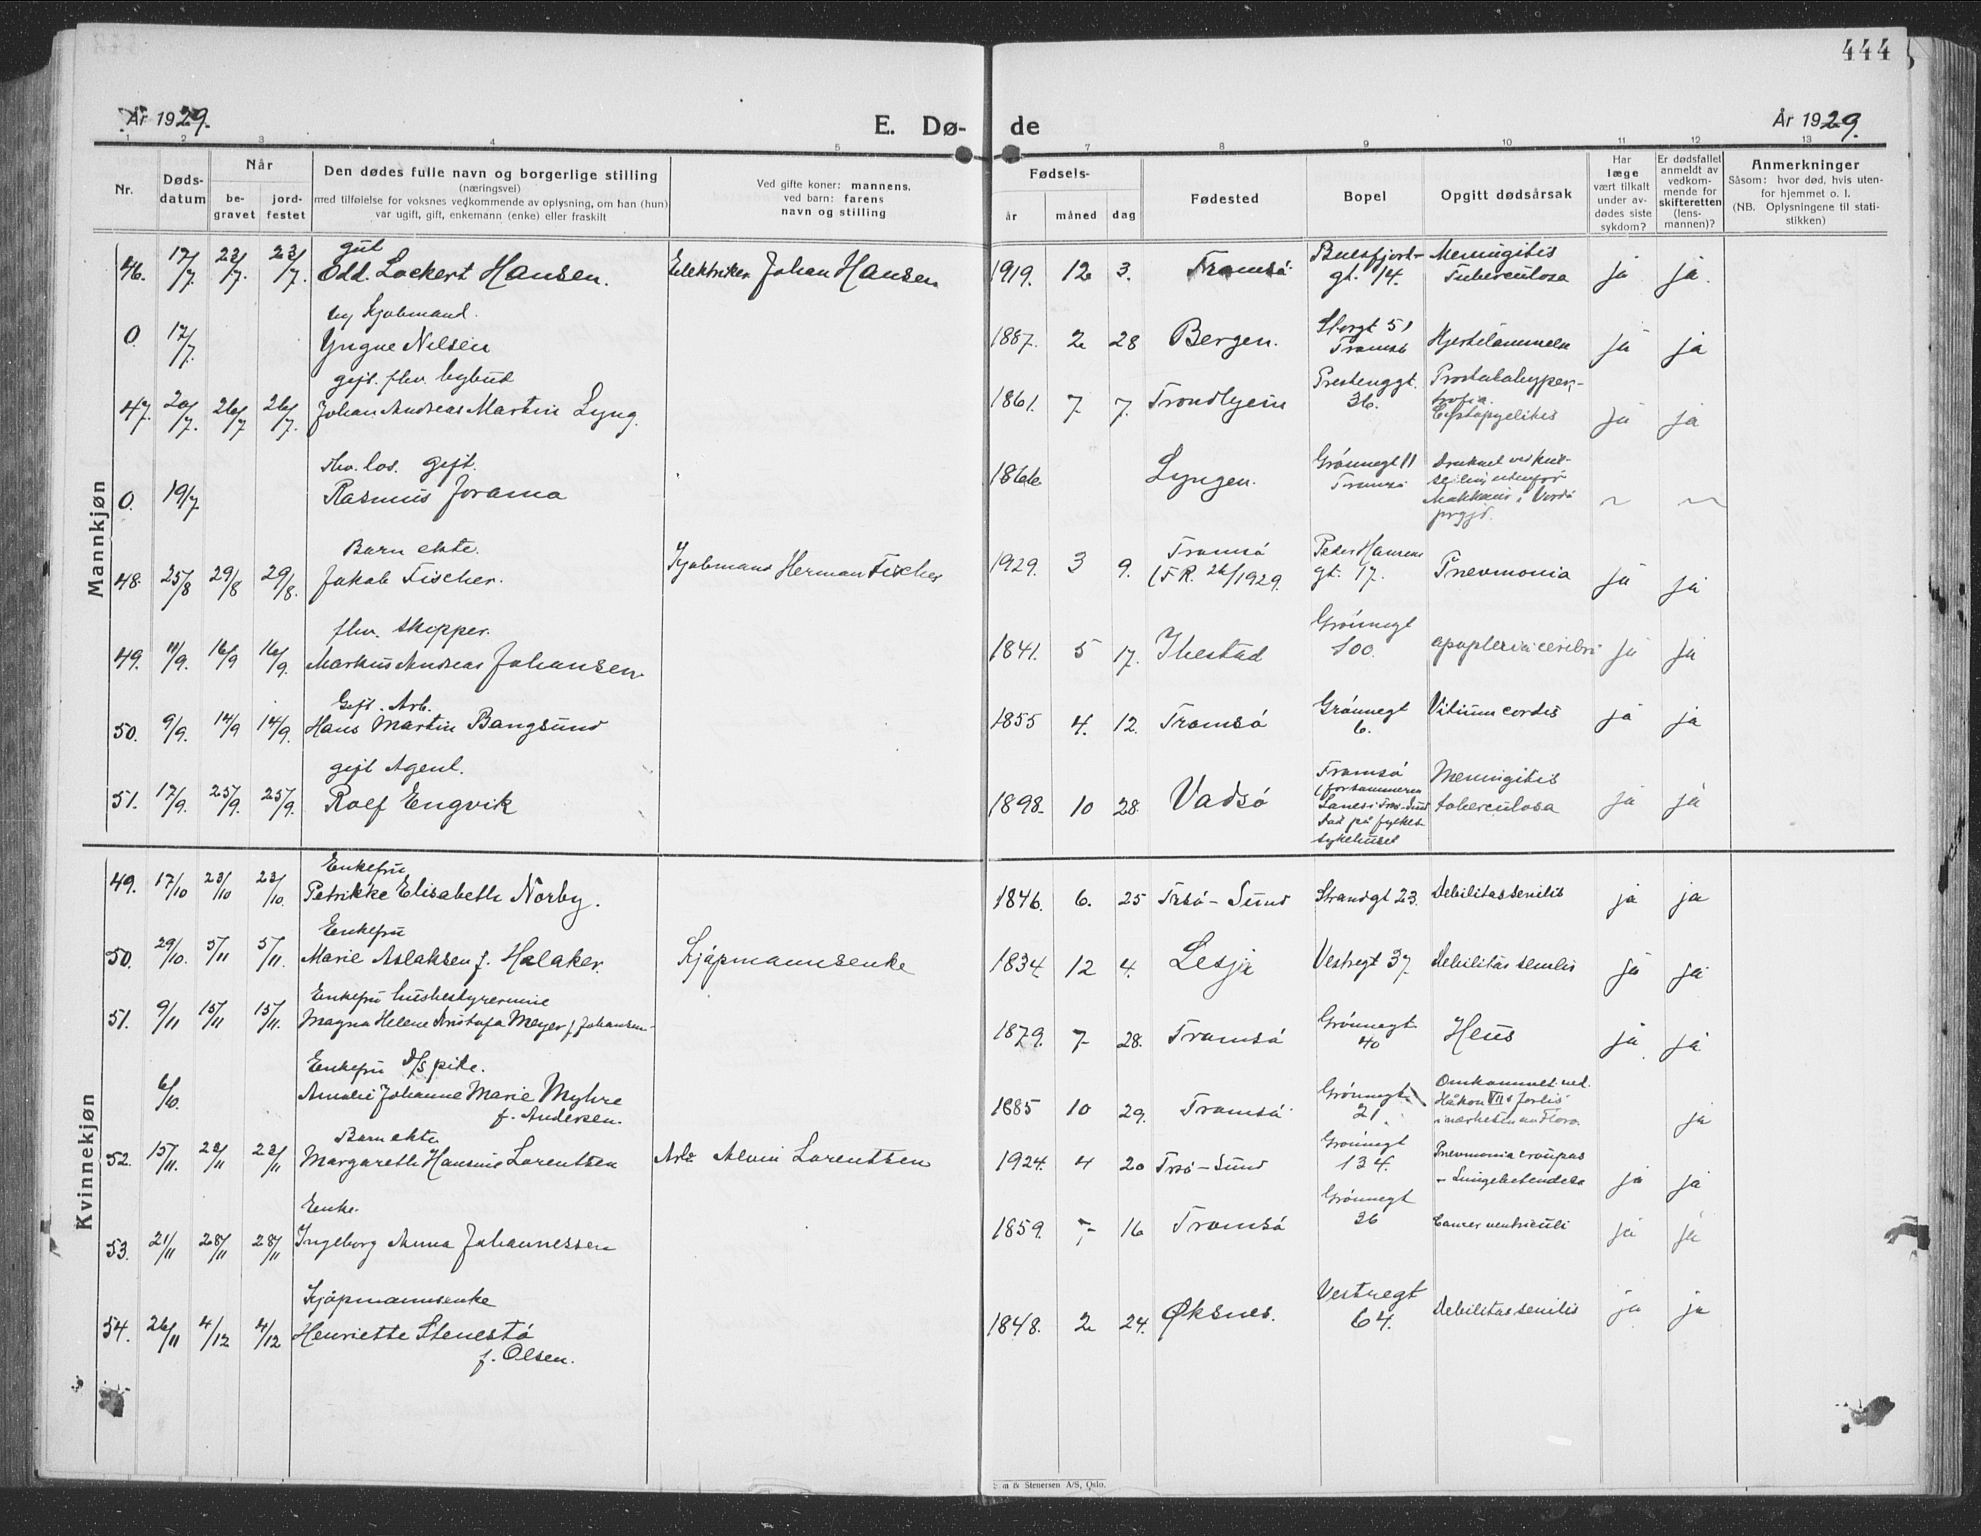 444
År 1929.
E. Dø- de
År 1929.
1 2 3 4 5 7 8 9 10 11 12 13
Nr.
Døds-
datum
Når
be-
gravet
jord-
festet
Den dødes fulle navn og borgerlige stilling
(næringsvei)
med tilføielse for voksnes vedkommende av oplysning, om han (hun)
var ugift, gift, enkemann (enke) eller fraskilt
Ved gifte koner: mannens,
ved barn: farens
navn og stilling
Fødsels-
år måned dag
Fødested
Bopel
Opgitt dødsårsak
Har
læge
vært tilkalt
under av-
dødes siste
sykdom?
Er dødsfallet
anmeldt av
vedkom-
mende for
skifteretten
(lens-
mannen)?
Anmerkninger
Såsom: hvor død, hvis uten-
for hjemmet o. l.
(NB. Oplysningene til stati-
stikken)
Mannkjøn
gut
46. 17/7. 23/7. 23/7. Odd. Lockert Hansen. Elektriker Johan Hansen 1919. 12 3. Tromsö gt. 14. Meningitis Tuberculosa ja ja.
Kjøbmand.
0. 17/7. Yngve Nilsen 1887. 2 28 Bergen. Storgt 51 Tromsö Hjertelammelse ja ja
gift. fhv. bybud
47. 20/7. 26/7 26/7. Johan Andreas Martin Lyng. 1861. 7. 7. Trondhjem Prestenggt. 36. Prostatahyper-
trofia.
Cystopyelitis ja ja
fhv. los. gift.
0. 19/7 Rasmus Jorama 1866. Lyngen. Grönnegt 11 Tromsö Druknet ved kul-
seiling utenfor
Makkaur i Vardö
prgjd. ~ ~
Barn ekte.
48. 25/8 29/8 29/8. Jakob Fischer. Kjøbmand Herman Fischer 1929. 3 9. Tromsö
(FR. 26/1929. Peder Hansens
gt. 17. Pnevmonia ja ja
fhv. skipper.
49. 11/9. 16/9 16/9. Markus Andreas Johansen 1841. 5 17. Ibestad Grönnegt
100. apoplexia cerebri ja ja
Gift. Arb.
50. 9/9. 14/9 14/9. Hans Martin Bangsund 1855 4. 12. Tromsö Grönnegt
6. Vitium cordis ja ja
gift Agent.
51. 17/9. 25/9. 25/9. Rolf Engvik 1898. 10 28. Vadsö Tromsö
Död på fylkes-
sykehuset Meningitis
tuberculosa ja ja
Kvinnekjøn
Enkefru
49. 17/10 23/10 23/10. Petrikke Elisabeth Norby. 1846. 6. 25 Trsö-Sund Strandgt 23. Debilitas senilis ja ja
Enkefru
50. 29/10. 5/11 5/11. Marie Aslaksen f. Holaker. Kjöpmannsenke 1834. 12 4. Lesja Vestregt 37. Debilitas senilis ja ja
Enkefru husbestyrerinne
51. 9/11 15/11 15/11. Magna Helene Kristofa Meyer f. Johansen 1879. 7 28. Tromsö Grönnegt
40 Ileus ja ja
Enkefru
6/10. Amalie Johanne Marie Myhre
f. Andersen. 1885 10 29. Tromsö Grönnegt
21. Omkommet ved
Håkon VII's forlis
i nærheten av Florø. ja
Barn ekte
52. 15/11. 22/11 22/11 Margareth Hansine Lorentsen Arb. Alvin Lorentsen 1924. 4 20 Trsö-Sund Grönnegt
134. Pnevmonia croupos
- Lungebetendelse ja ja
Enke.
53. 21/11 28/11 28/11 Ingeborg Anna Johannessen 1859. 7 16 Tromsö Grönnegt
36 Cancer ventriculi ja ja
Kjöpmannsenke
54. 26/11 4/12 4/12 Henriette Stenestö
f. Olsen. 1848. 2 24. Øksnes. Vestregt
64. Debilitas senilis ja ja
& Stenersen A/S, Oslo.